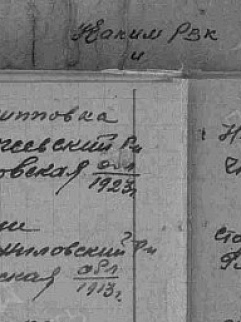 Каким РВК
и
иповка
чевский Рн
овская обл
1923г
ни
ниловский? Рн
ская обл
1913г.
ста